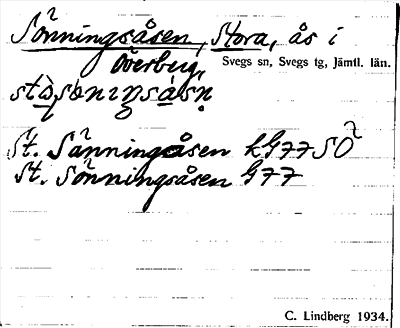 Sönningsåsen, Stora, ås i
Överberg,
Svegs sn, Svegs tg, Jämtl. län.
St. Sånningåsen kG77SO
St. Sönningsåsen G77
C. Lindberg 1934.